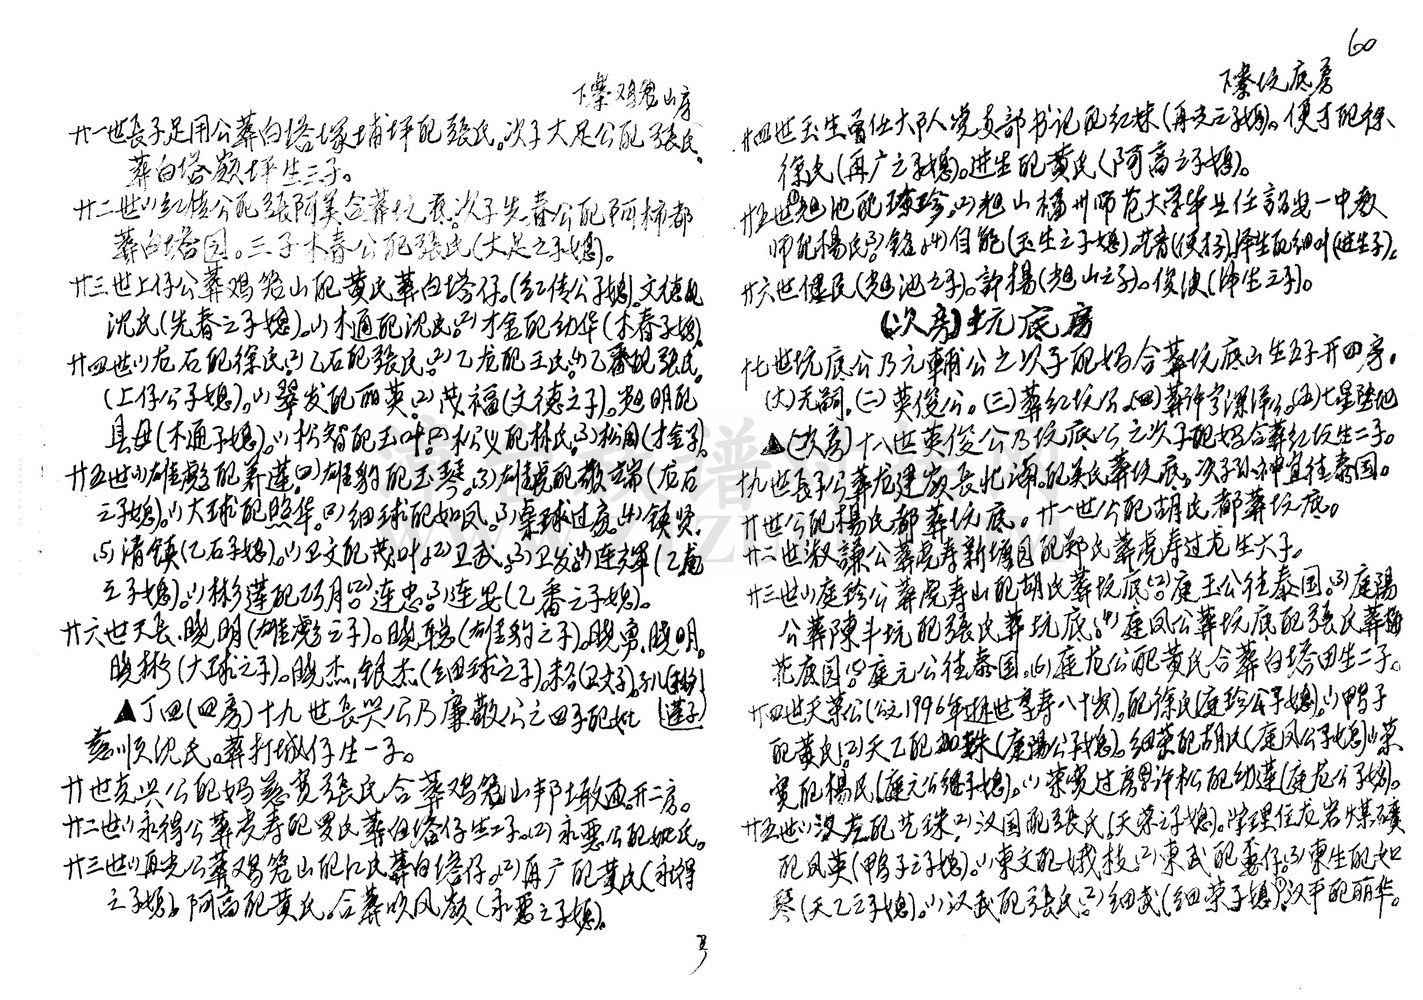 下 鸡笼山房
廿一世長子足用公葬白塔塚埔坪配張氏。次子大足公配張氏
葬白塔嶺坪生三子。
廿二世(1)红传公配張阿美合葬坑 。次子先春公配阿柿都
葬白塔园。三子木春公配張氏(大足之子媳)。
廿三世上仔公葬鸡笼山配黄氏葬白塔仔。(红传公子媳)。文德配
沈氏(先春之子媳)。(1)木通配沈氏。(2)才金配幼华(木春子媳)
廿四世(1)龙石配徐氏。(2)乙石配張氏。(3)乙龙配王氏。(4)乙番配張氏。
(上仔公子媳)。(1)翠发配丽英。(2)茂福(文德之子)。旭明配
县母(木通子媳)。(1)松智配玉叶。(2)松义配林氏。(3)松国(才金子)。
廿五世(1)雄彪配 莲。(2)雄豹配玉琴。(3)雄虎配敬端(龙石
之子媳)。(1)大球配照华。(2)细球配如凤。(3)桌球过房。(4)镇贤。
(5)清镇(乙石子媳)。(1)卫文配茂叶。(2)卫武。(3)卫发。(4)连辉(乙龙
之子媳)。(1)彬莲配巧月。(2)连忠。(3)连安(乙番之子媳)。
廿六世天长、晓明(雄彪之子)。晓聪(雄豹之子)。晓勇、晓明。
晓彬(大球之子)。晓杰、银杰(细球之子)。 (卫文子)。 (彬莲子)
▲丁四(四房)十九世長兴公乃廉敬公之四子配妣
慈顺沈氏。葬打城仔生一子。
廿世克兴公配妈慈宽張氏合葬鸡笼山 。开二房。
廿二世(1)永得公葬虎寿配罗氏葬白塔仔生二子。(2)永恶公配 氏。
廿三世(1)再光公葬鸡笼山配江氏葬白塔仔。(2)再广配黄氏(永得
之子媳)。阿高配黄氏。合葬吹风嶺(永恶之子媳)。
60
下 坑底房
廿四世玉生曾任大队党支部书记配红妹(再光子媳)。便才配徐
徐氏(再广之子媳)。进生配黄氏(阿高之子媳)。
廿五世(1)旭池配琼珍。(2)旭山福州师范大学毕业任詔安一中教
师配楊氏。(3)铭。(4)自能(玉生之子媳)。 (便才)。泽生配细叶(进生子)。
廿六世健民(旭池之子)。許楊(旭山之子)。俊波(泽生之子)。
(次房)坑底房
十七世坑底公乃元輔公之次子配妈合葬坑底山生五子开四房。
(大)无嗣。(二)英俊公。(三)葬红坑公。(四)葬许宇 公。(五)七星墜地
▲(次房)十八世英俊公乃坑底公之次子配妈合葬红坑生二子。
十九世長子公葬龙建嶺長北浦。配吴氏葬坑底。次子孙神宜往泰国。
廿世公配楊氏都葬坑底。廿一世公配胡氏都葬坑底。
廿二世淑謙公葬虎寿新塘園配郑氏葬虎寿过龙生六子。
廿三世(1)庭珍公葬虎寿山配胡氏葬坑底。(2)庭玉公往泰国。(3)庭陽
公葬陳斗坑配張氏葬坑底。(4)庭凤公葬坑底配張氏葬梅
花底园。(5)庭元公往泰国。(6)庭龙公配黄氏合葬白塔田生二子。
廿四世天菜公(公文1996年逝世享寿八十岁)。配徐氏(庭珍公子媳)。(1)鸭子
配黄氏。(2)天乙配 妹(庭陽公子媳)。细菜配胡氏(庭凤公子媳)。(1)荣
宽配楊氏(庭元公继子媳)。(1)荣宽过房。(2)许松配幼莲(庭龙公子媳)。
廿五世(1)汉龙配芝珠。(2)汉国配張氏(天菜之子媳)。学理住龙岩煤礦
配凤英(鸭子之子媳)。(1)東文配娥枝。(2)東武配 仔。(3)東生配如
琴(天乙之子媳)。(1)汉武配張氏。(2)细武(细荣子媳)。汉平配丽华。